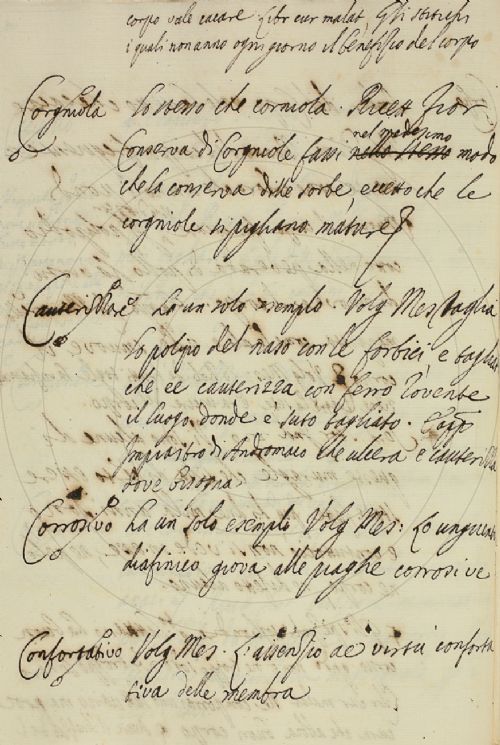 corpo vale cacare Libr cur malat, Gli stitichi
i quali non anno ogni giorno il benefizio del corpo
Corgniola lo stesso che corniola. Ricet Fior
nel medesimo
Conserva di Corgniole fassi nello stesso modo
che la conserva delle sorbe, eccetto che le
corgniole si pigliano mature
Cauterizzare ha un solo esempio. Volg Mes Taglia
lo polipo del naso con le forbici, e
che ee cauterizza con ferro rovente
il luogo donde è suto tagliato.
impiastro di Andromaco che ulcera e cauterizza
dove bisogna
Corrosivo ha un solo esempio Volg Mes: Lo unguento
diafinico giova alle piaghe corrosive
Confortativo Volg Mes. L'assenzio ae virtù conforta
tiva delle membra